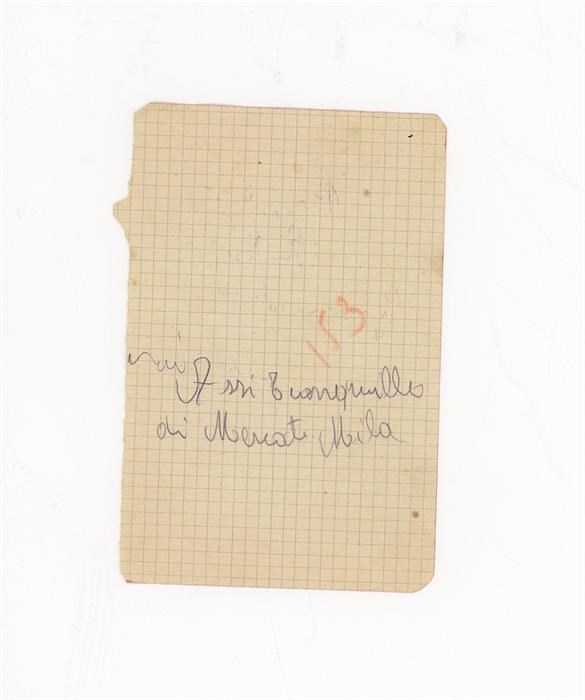 153
Assi Tranquillo
di Mercati Mila